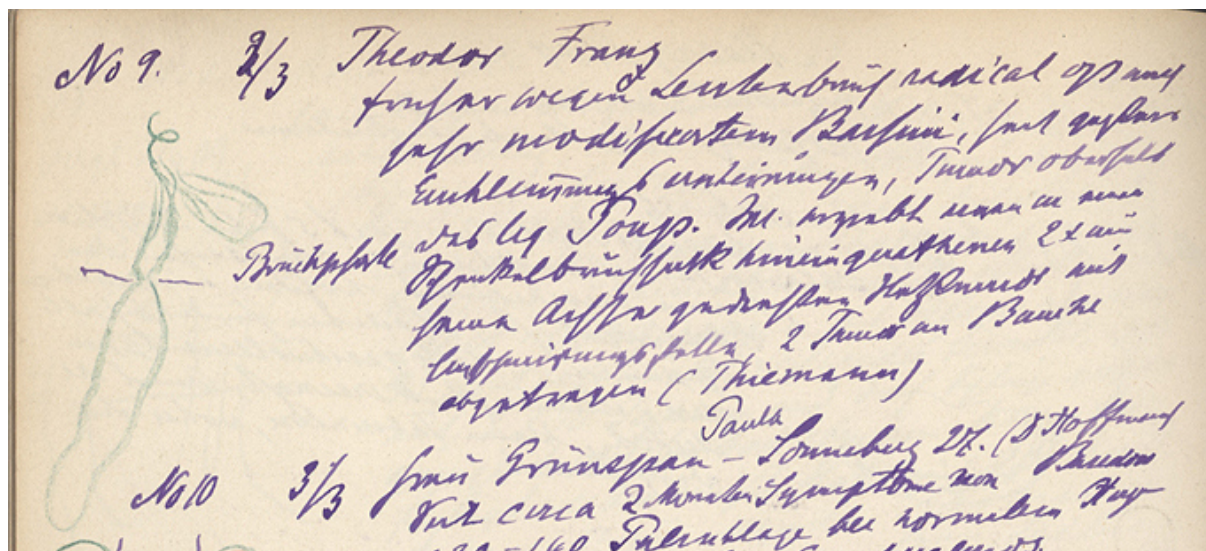 No 9. 2/3 Theodor Franz
früher wegen Leistenbruch radical op nach
sehr modificirtem Bassini, seit gestern
Einklemmungserscheinungen, Tumor oberhalb
des lig Poup. Inc. ergiebt einen in einen
Bruchpforte Schenkelbruchsack hineingerathenen 2x um
seine Achse gedrehten Netztumor mit
Einschnürungsstelle, 2 Tumor am Bauche
abgetragen (Thiemann)
Paula
No 10 3/3 Frau Grünspan - Sonneberg 27. (D Hoffmann
Seit circa 2 Monaten Symptome von Basedow
140 Pulsschläge bei normalem